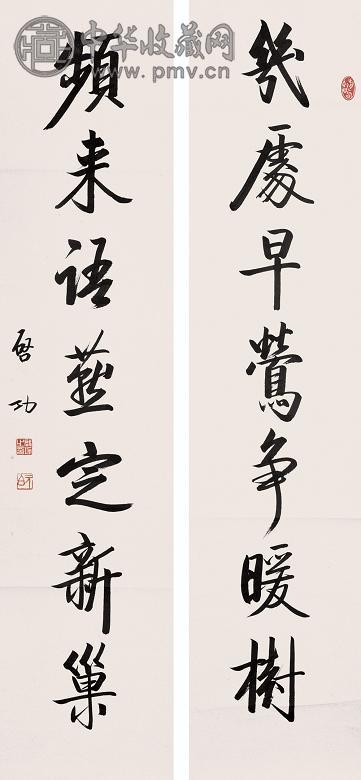 中华收藏网
www.pmv.cn
幾處早鶯争暖樹
頻来語燕定新巢
啓功